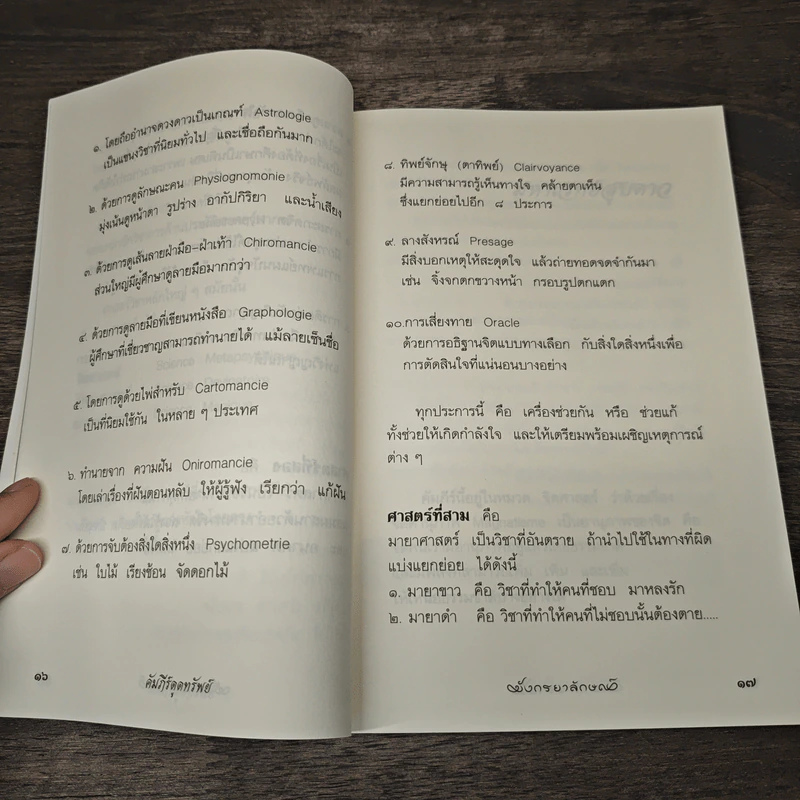 ๑. โดยถืออำนาจดวงดาวเป็นเกณฑ์ Astrologie
เป็นแขนงวิชาที่นิยมทั่วไป และเชื่อถือกันมาก
๒. ด้วยการดูลักษณะคน Physiognomonie
มุ่งเน้นดูหน้าตา รูปร่าง อากัปกิริยา และน้ำเสียง
๓. ด้วยการดูเส้นลายฝ่ามือ-ฝ่าเท้า Chiromancie
ส่วนใหญ่มีผู้ศึกษาดูลายมือมากกว่า
๔. ด้วยการดูลายมือที่เขียนหนังสือ Graphologie
ผู้ศึกษาที่เชี่ยวชาญสามารถทำนายได้ แม้ลายเซ็นชื่อ
๕. โดยการดูด้วยไพ่สำหรับ Cartomancie
เป็นที่นิยมใช้กัน ในหลาย ๆ ประเทศ
๖. ทำนายจาก ความฝัน Oniromancie
โดยเล่าเรื่องที่ฝันตอนหลับ ให้ผู้รู้ฟัง เรียกว่า แก้ฝัน
๗. ด้วยการจับต้องสิ่งใดสิ่งหนึ่ง Psychometrie
เช่น ใบไม้ เรียงซ้อน จัดดอกไม้
๑๖ คัมภีร์ดูดทรัพย์
๘. ทิพย์จักษุ (ตาทิพย์) Clairvoyance
มีความสามารถรู้เห็นทางใจ คล้ายตาเห็น
ซึ่งแยกย่อยไปอีก ๘ ประการ
๙. ลางสังหรณ์ Presage
มีสิ่งบอกเหตุให้สะดุดใจ แล้วถ่ายทอดจดจำกันมา
เช่น จิ้งจกตกขวางหน้า กรอบรูปตกแตก
๑๐.การเสี่ยงทาย Oracle
ด้วยการอธิฐานจิตแบบทางเลือก กับสิ่งใดสิ่งหนึ่งเพื่อ
การตัดสินใจที่แน่นอนบางอย่าง
ทุกประการนี้ คือ เครื่องช่วยกัน หรือ ช่วยแก้
ทั้งช่วยให้เกิดกำลังใจ และให้เตรียมพร้อมเผชิญเหตุการณ์
ต่าง ๆ
ศาสตร์ที่สาม คือ
มายาศาสตร์ เป็นวิชาที่อันตราย ถ้านำไปใช้ในทางที่ผิด
แบ่งแยกย่อย ได้ดังนี้
๑. มายาขาว คือ วิชาที่ทำให้คนที่ชอบ มาหลงรัก
๒. มายาดำ คือ วิชาที่ทำให้คนที่ไม่ชอบนั้นต้องตาย.....
มังกรยาลักษณ์ ๑๗